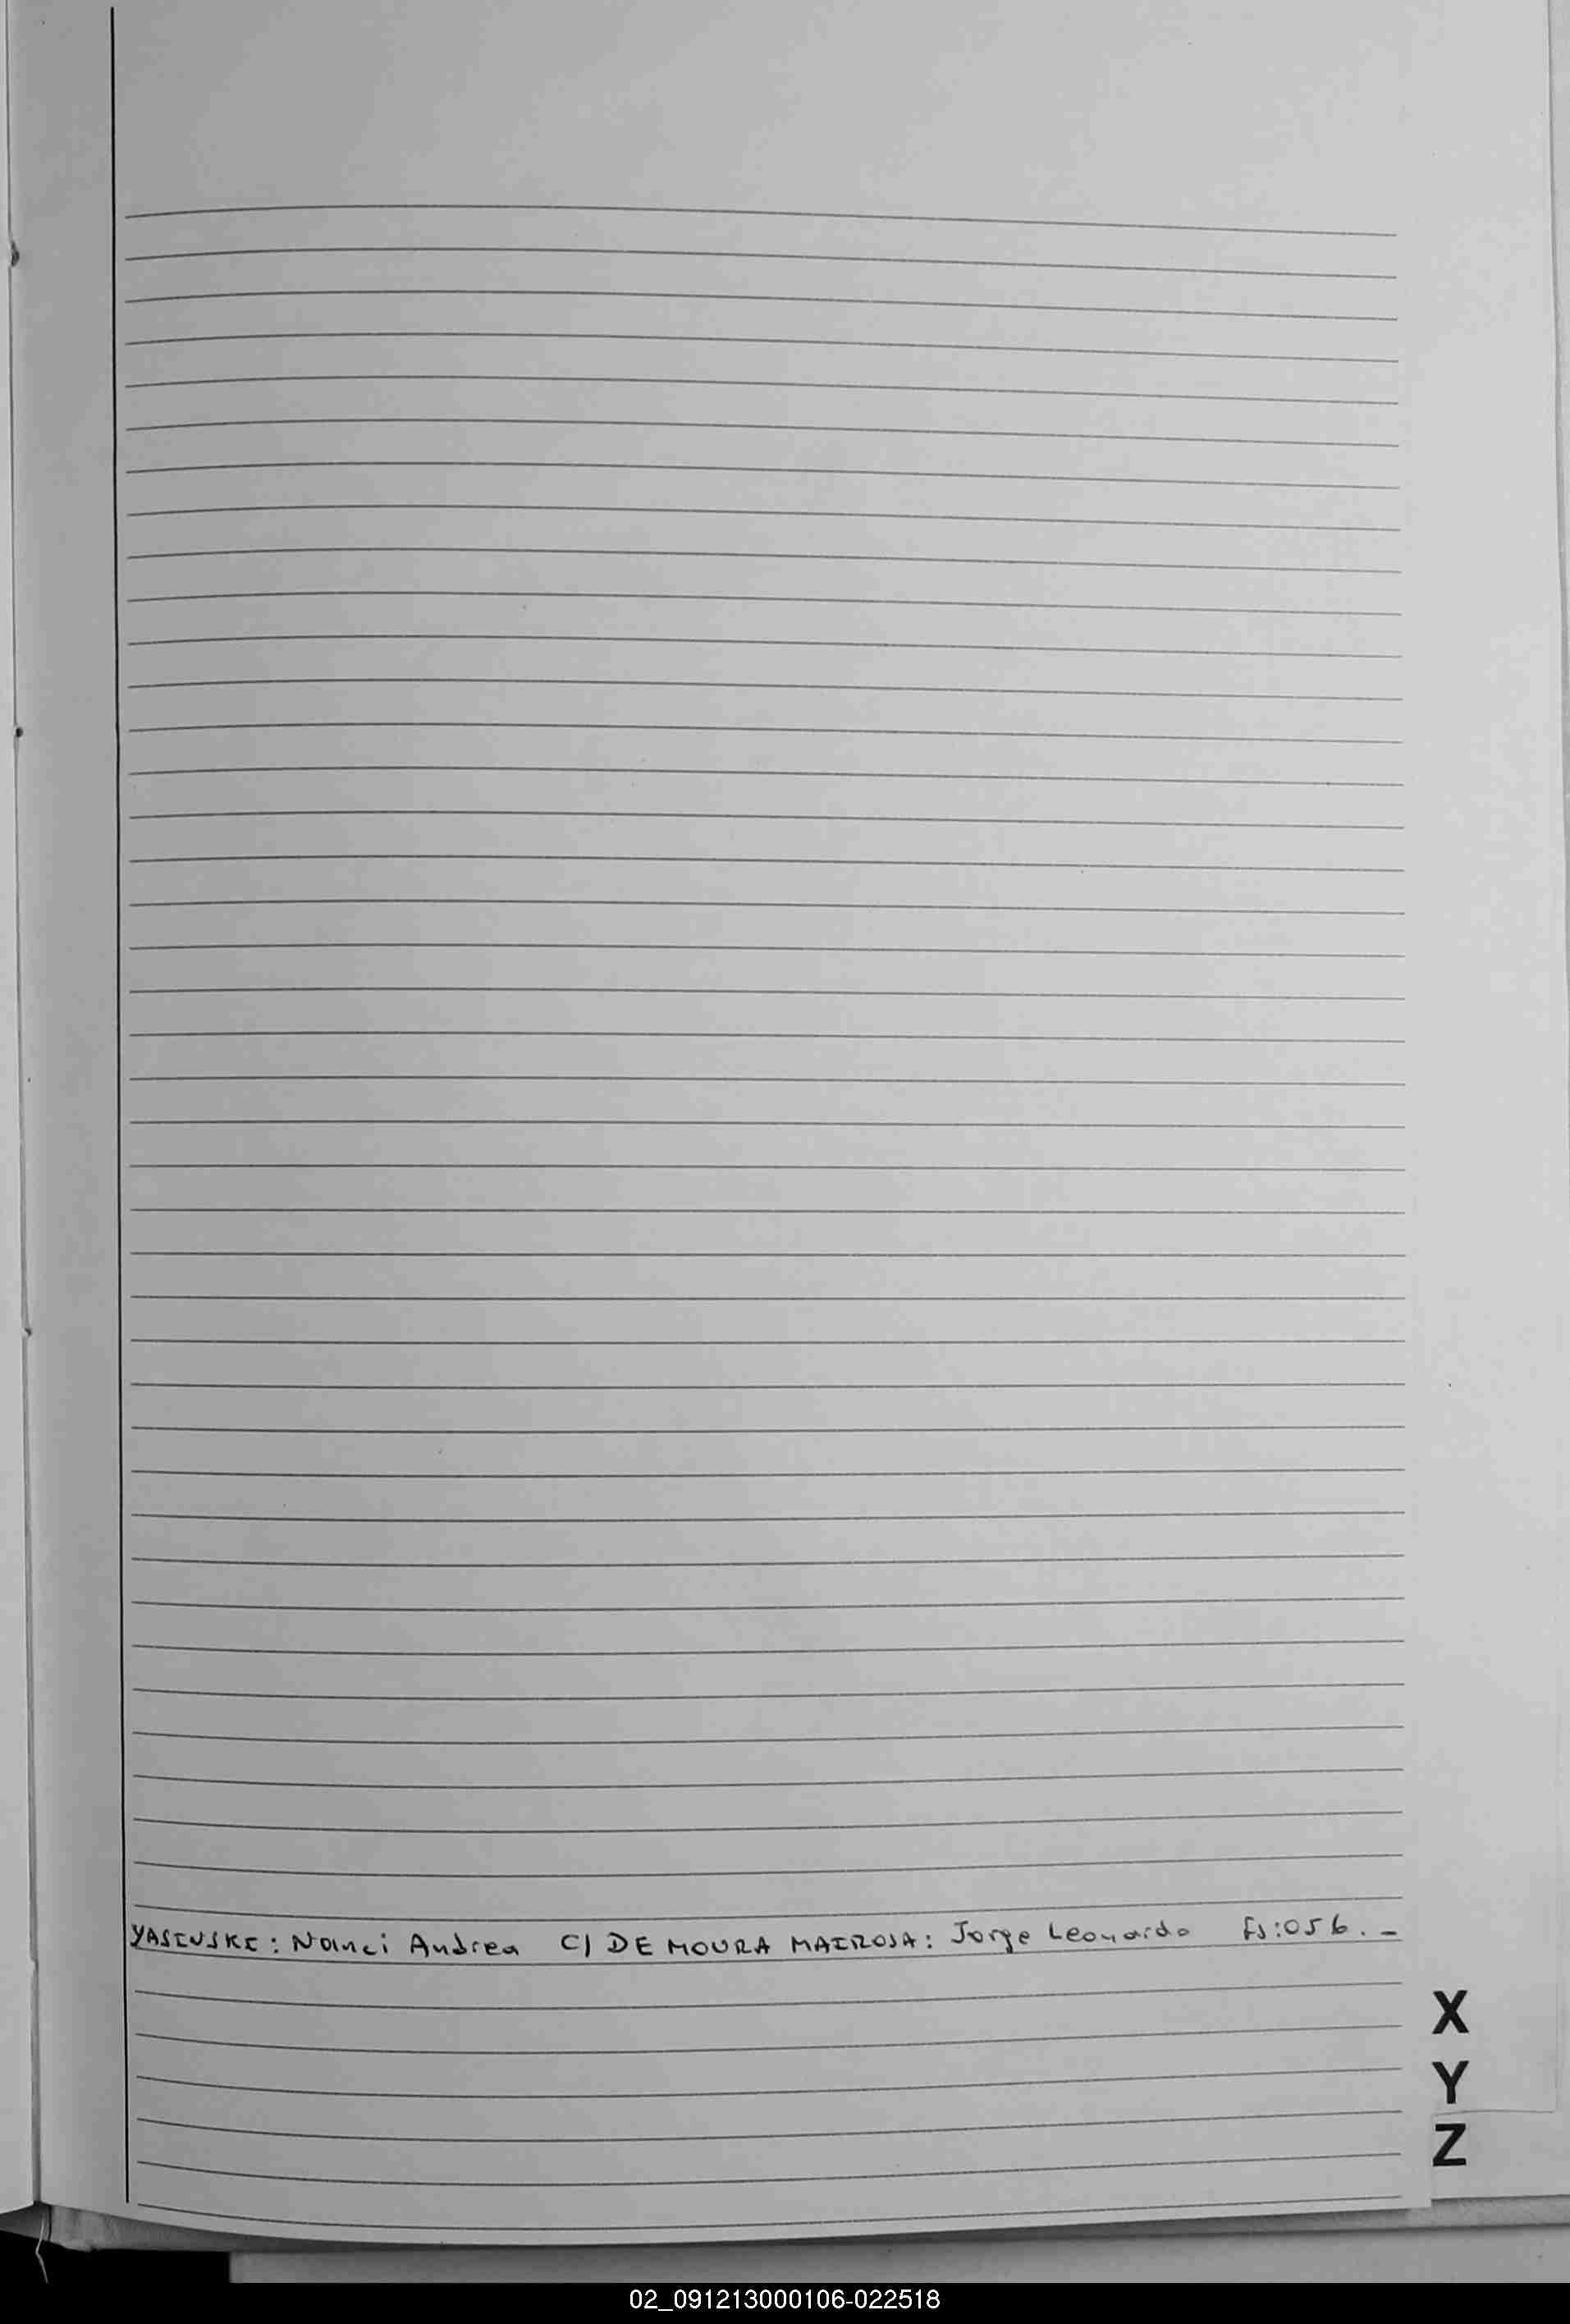 YASINSKI: Nanci Andrea C/ DE MOURA MAIROSA: Jorge Leonardo Fs:056.-
X
Y
Z
02_091213000106-022518